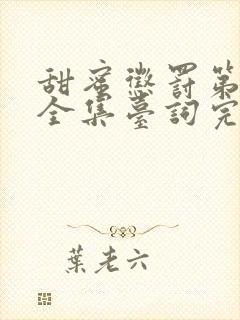 甜蜜懲罰第
全集臺詞完
葉老六